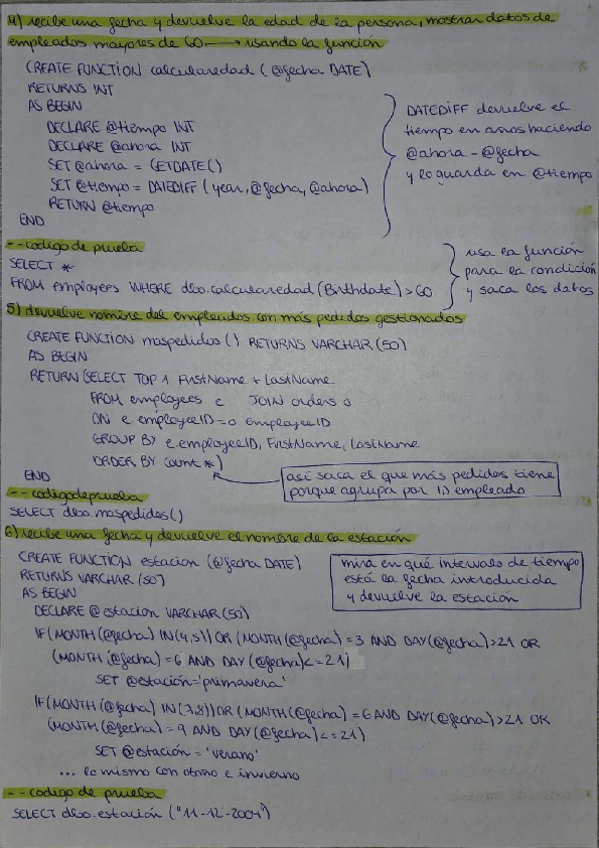 4) recibe una fecha y devuelve la edad de la persona, mostrar datos de
empleados mayores de 60 → usando la función
CREATE FUNCTION calcularedad (@fecha DATE)
RETURNS INT
AS BEGIN
DECLARE @tiempo INT
DECLARE @ahora INT
SET @ahora = GETDATE()
SET @tiempo = DATEDIFF (year, @fecha, @ahora)
RETURN @tiempo
END
DATEDIFF devuelve el
tiempo en anos haciendo
@ahora - @fecha
y lo guarda en @tiempo
-- codigo de prueba
SELECT *
FROM employees WHERE dbo.calcularedad (Birthdate) > 60
usa la función
para la condición
y saca los datos
5) devuelve nombre del empleados con más pedidos gestionados
CREATE FUNCTION maspedidos () RETURNS VARCHAR (50)
AS BEGIN
RETURN (SELECT TOP 1 FirstName + LastName
FROM employees e JOIN orders o
ON e.employeeID = o employeeID
GROUP BY e.employeeID, FirstName, LastName
ORDER BY Count *)
END
así saca el que más pedidos tiene
porque agrupa por ID empleado
-- codigo de prueba
SELECT dbo.maspedidos()
6) recibe una fecha y devuelve el nombre de la estación
CREATE FUNCTION estacion (@fecha DATE)
RETURNS VARCHAR (50)
AS BEGIN
DECLARE @estacion VARCHAR (50)
mira en qué intervalo de tiempo
está la fecha introducida
y devuelve la estación
IF (MONTH (@fecha) IN (4,5)) OR (MONTH (@fecha) = 3 AND DAY (@fecha) > 21 OR
(MONTH (@fecha) = 6 AND DAY (@fecha) <= 21)
SET @estación = 'primavera'
IF (MONTH (@fecha) IN (7,8)) OR (MONTH (@fecha) = 6 AND DAY (@fecha) > 21 OR
(MONTH (@fecha) = 9 AND DAY (@fecha) <= 21)
SET @estación = 'verano'
... lo mismo con otoño e invierno
-- codigo de prueba
SELECT dbo.estación ("11-12-2004")